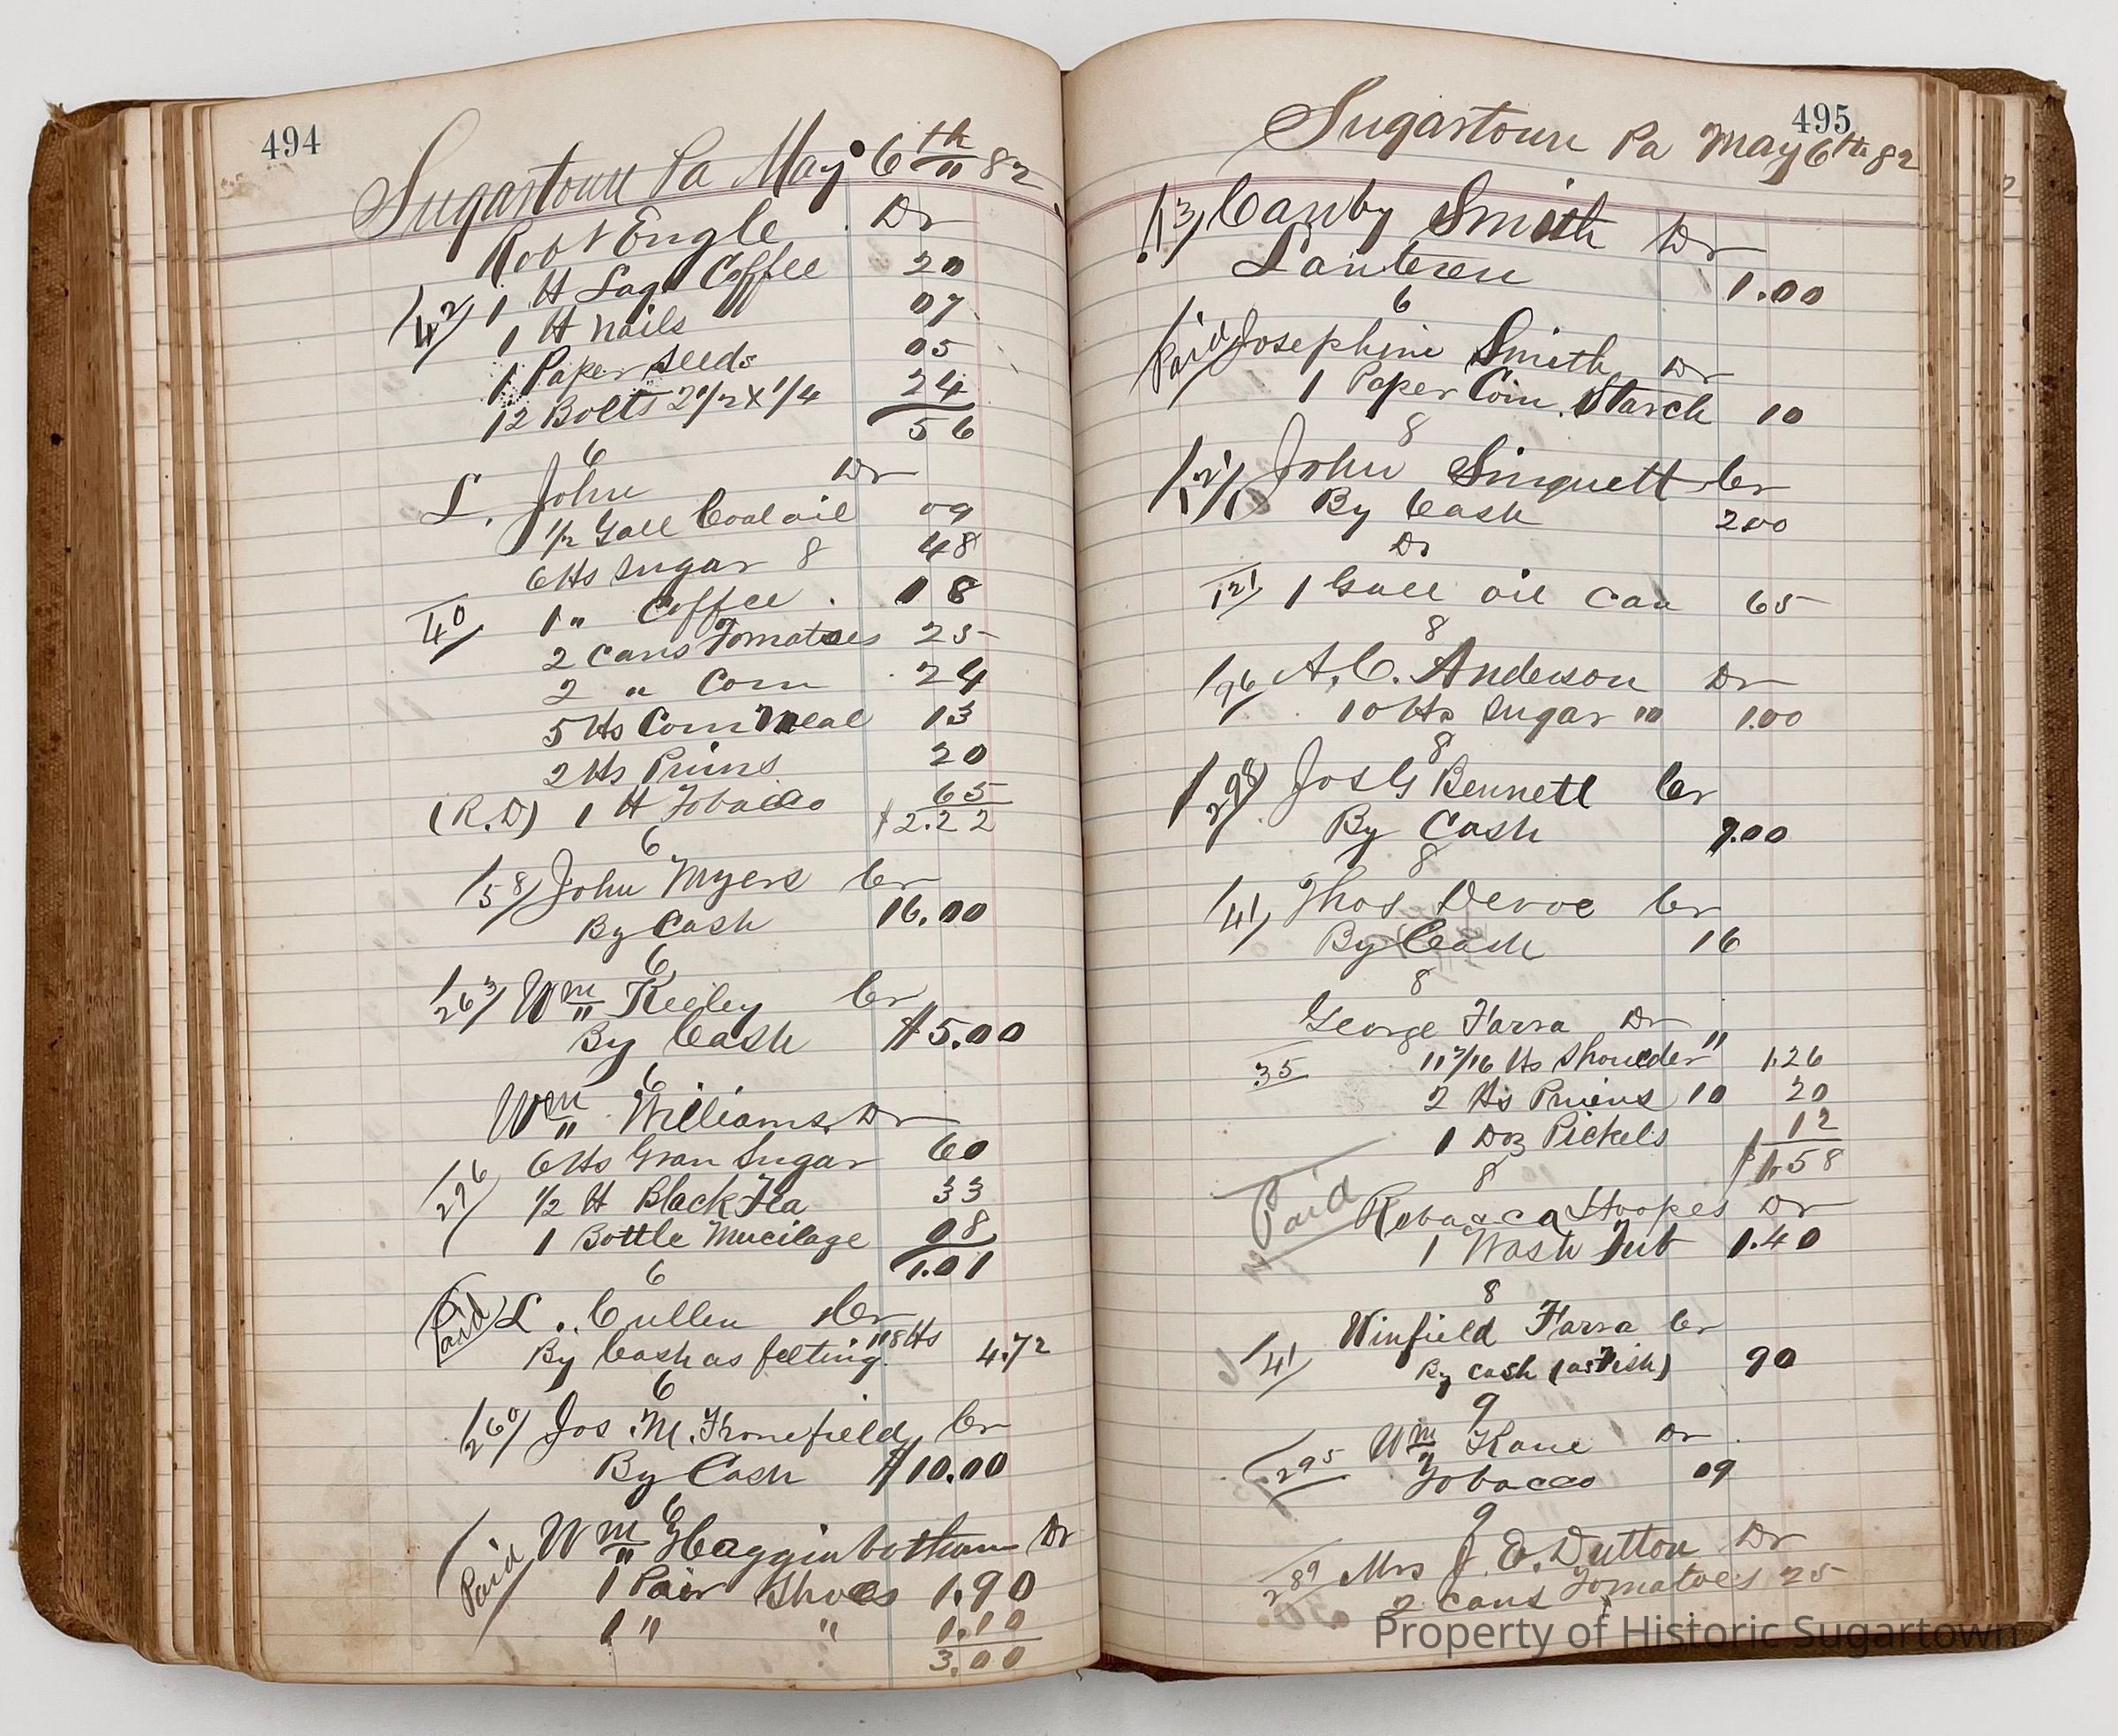 494
Sugartown Pa May 6th 82
Robt Engle Dr
42 1 ℔ Lag. Coffee 20
1 ℔ Nails 07
1 Paper Seeds 05
12 Bolts 2 1/2 X 1/4 24
56
6
L. John Dr
1/2 Gall Coal oil 09
6 ℔s Sugar 8 48
40 1 " Coffee . 18
2 Cans Tomatoes 25
2 " Corn 24
5 ℔s Corn Meal 13
2 ℔s Pruins 20
(R.D) 1 ℔ Tobacco 65
$2.22
6
58 John Myers Cr
By Cash 16.00
6
263 Wm Keeley Cr
By Cash $5.00
6
Wm Williams Dr
6 ℔s Gran Sugar 60
276 1/2 ℔ Black Tea 33
1 Bottle Mucilage 08
1.01
6
Paid L. Cullen Cr
By Cash as felting 118 ℔s 4.72
6
260 Jos. M. Fronefield Cr
By Cash $10.00
6
Paid Wm Haggin bothum Dr
1 Pair Shoes 1.90
1 " " 1.10
3.00
495
Sugartown Pa May 6th 82
13 Canby Smith Dr
Lantern 1.00
6
Paid Josephine Smith Dr
1 Paper Corn Starch 10
8
121 John Singuett Cr
By Cash 2.00
Dr
121 1 Gall oil Can 65
8
96 A. C. Anderson Dr
10 ℔s Sugar 10 1.00
8
298 Jos G Bennett Cr
By Cash 9.00
8
41 Thos Devoe Cr
By Cash 16
8
George Farra Dr
35 11 7/16 ℔s Shoulder 11 1.26
2 ℔s Pruins 10 20
1 Doz Pickels 12
$1.58
8
Paid Rebacca Hoopes Dr
1 Wash Tub 1.40
8
Winfield Farra Cr
41 By Cash (as Fish) 90
9
295 Wm Kane Dr
Tobacco 09
9
289 Mrs J. E. Dutton Dr
2 Cans Tomatoes 25
Property of Historic Sugartown